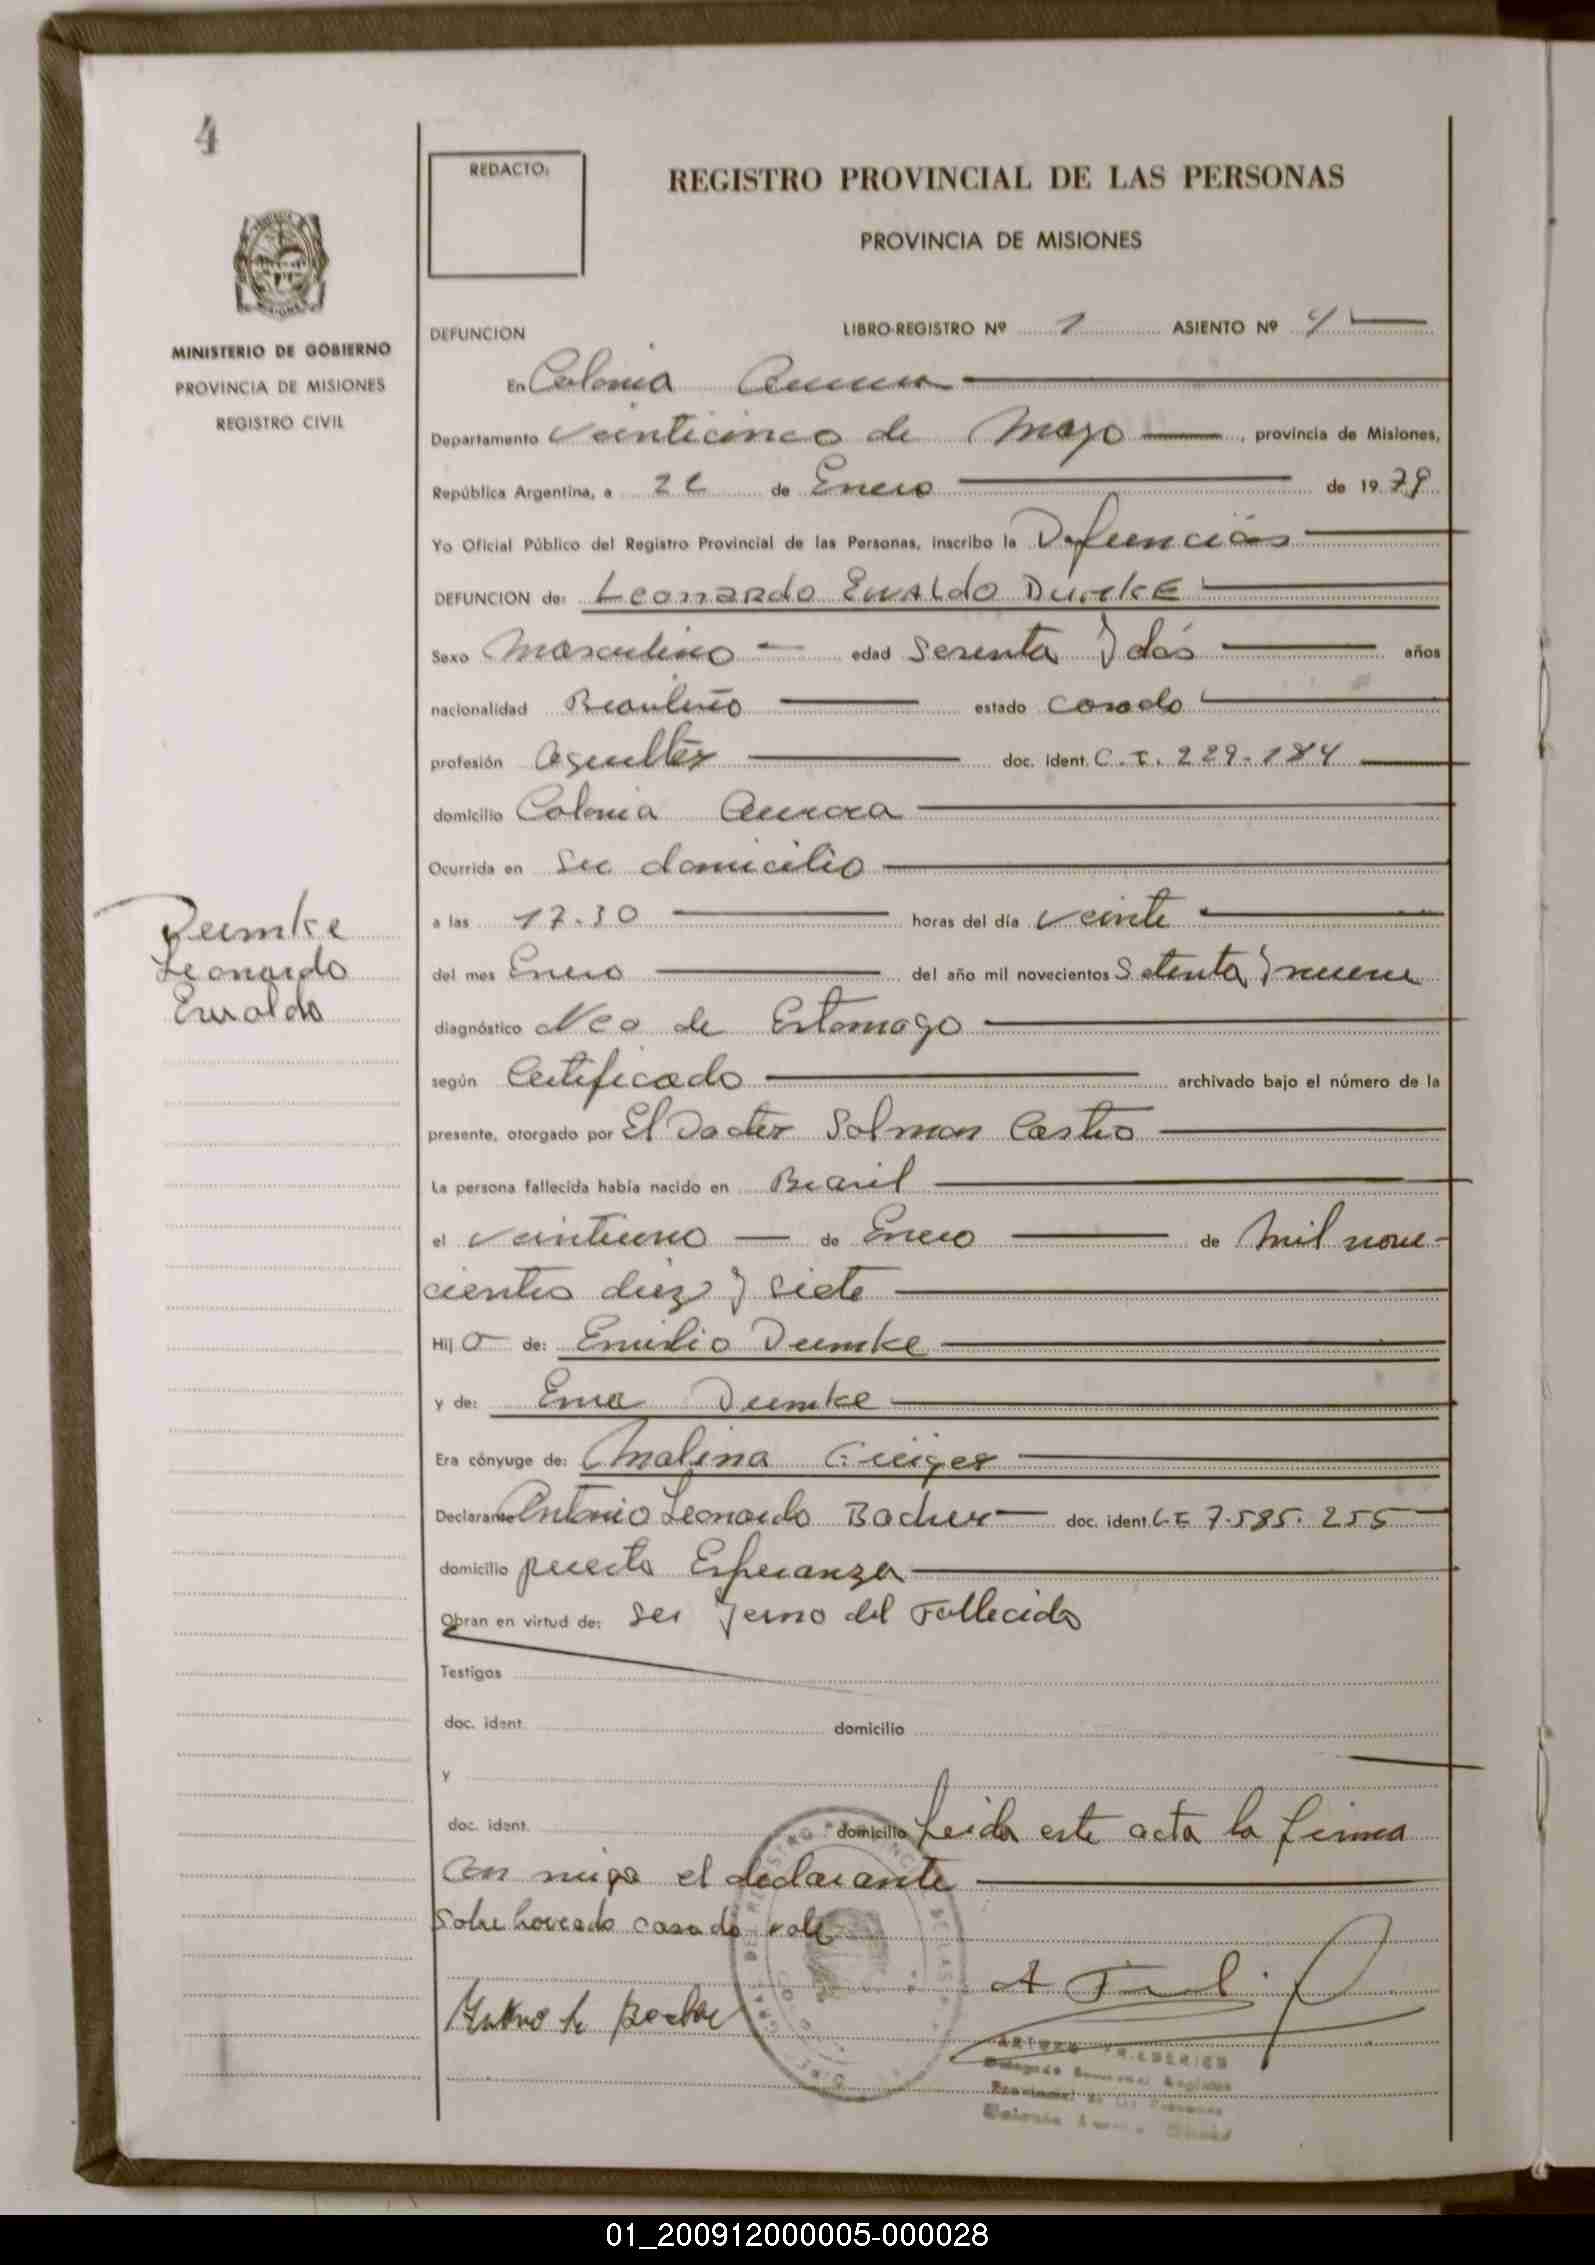 4
REDACTO:
REGISTRO PROVINCIAL DE LAS PERSONAS
PROVINCIA DE MISIONES
MINISTERIO DE GOBIERNO
PROVINCIA DE MISIONES
REGISTRO CIVIL
DEFUNCION LIBRO-REGISTRO Nº 1 ASIENTO Nº 4
En Colonia Aurora
Departamento Veinticinco de Mayo, provincia de Misiones,
República Argentina, a de Enero de 1979
Yo Oficial Público del Registro Provincial de las Personas, inscribo la Defunción
DEFUNCION de: Leonardo Ewaldo Dumke
Sexo Masculino edad Sesenta y dos años
nacionalidad Brasileño estado casado
profesión Agricultor doc. ident. C.I. 229.184
domicilio Colonia Aurora
Ocurrida en su domicilio
a las 17.30 horas del día veinte
del mes Enero del año mil novecientos Setenta y nueve
diagnóstico Neo de Estomago
según Certificado archivado bajo el número de la
presente, otorgado por El Doctor Salmon Castro
La persona fallecida había nacido en Brasil
el veintiuno de Enero de Mil nove-
cientos diez y siete
Hijo de: Emilio Dumke
y de: Ema Dumke
Era cónyuge de: Malina
Declarante Antonio Leonardo Bacher doc. ident. L.E 7.585.255
domicilio puerto Esperanza
Obran en virtud de: Ser yerno del Fallecido
Testigos
doc. ident. domicilio
y
doc. ident. domicilio Leida este acta la firma
con migo el declarante
Sobre borrado casado vale
Dumke
Leonardo
Ewaldo
01_200912000005-000028